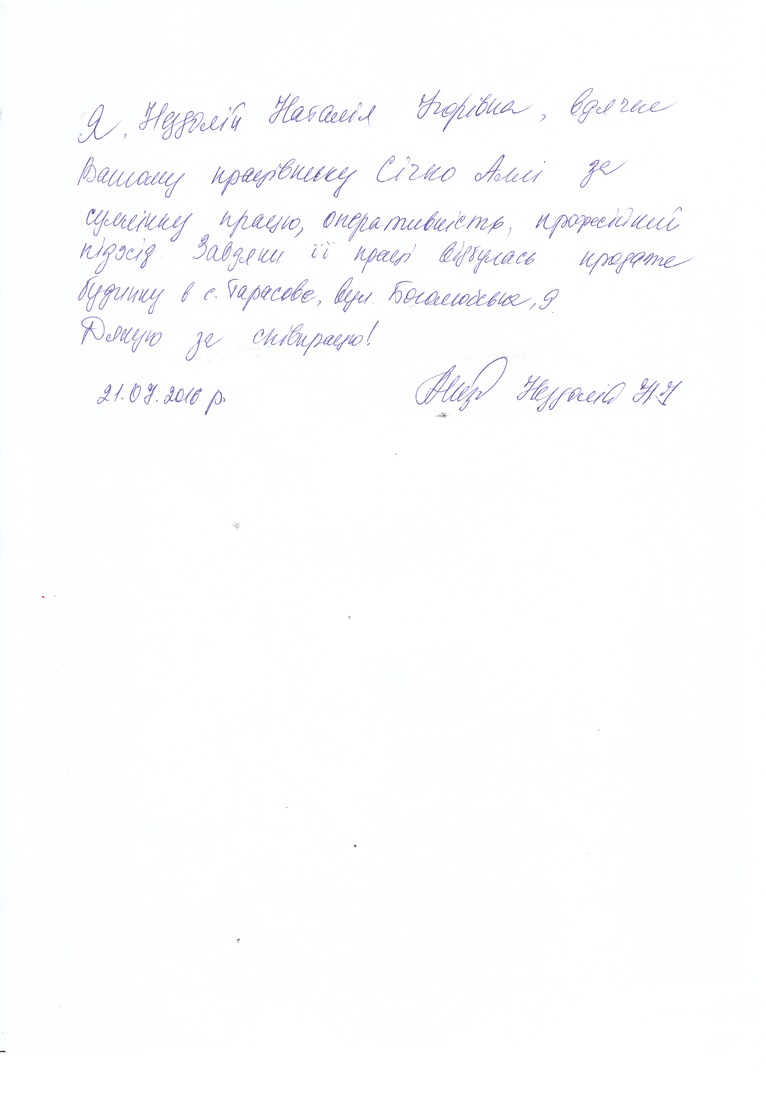 Я, Неудолій Наталія Ігорівна, вдячна
Вашому працівнику Січко Аллі за
сумлінну працю, оперативність, професійний
підхід. Завдяки її праці відбулась продаже
будинку в с. Тарасове, вул. 9
Дякую за співпрацю!
21.07.2016 р. Неудолій Н.І